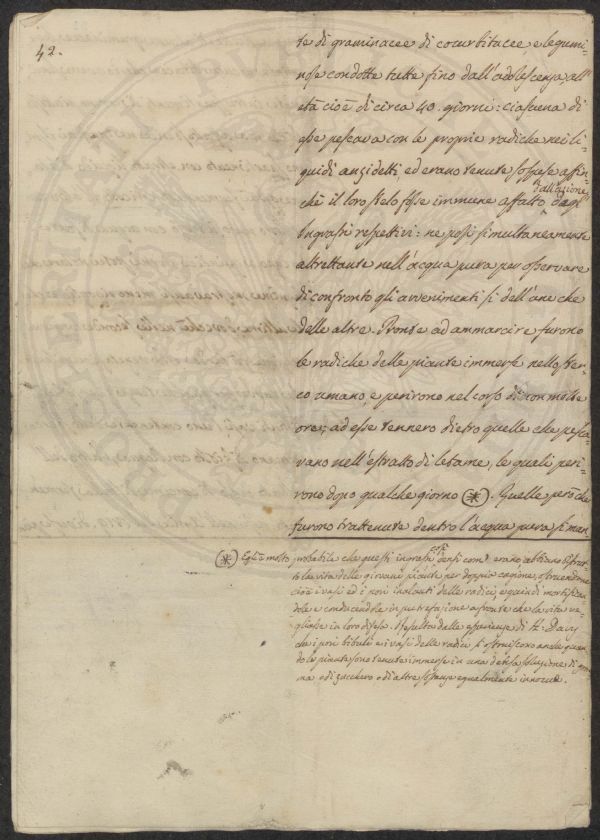 42.
te di graminacee di cocurbitacee e legumi-
nose condotte tutte fino dall'adolescenza all'
età cioè di circa 40. giorni: ciascuna di
esse pescava con le proprie radiche nei li-
quidi anzidetti, ed erano tenute sospese affin
dall'azione
chè il loro stelo fosse immune affatto degl'
Ingrassi respettivi: ne posi simultaneamente
altrettante nell'acqua pura per osservare
di confronto gli avvenimenti sì dell'une che
delle altre. Pronte ad ammarcire furono
le radiche delle piante immerse nello ster-
co umano, e perirono nel corso di non molte
ore; ad esse tennero dietro quelle che pesca-
vano nell'estratto di letame, le quali peri-
rono dopo qualche giorno (*). Quelle però che
furono trattenute dentro l'acqua pura si man
così
(*) Egli è molto probabile che questi ingrassi densi com'erano abbiano distrut
to la vita delle giovani piante per doppia cagione, ostruendone
cioè i vasi ed i pori inalanti delle radici, e quindi mortifican
dole e conducendole in putrefazione a fronte che la vita ve-
gliasse in loro difesa. Resulta dalle esperienze di H. Davy
che i pori bibuli e i vasi delle radici si ostruiscono anche quan
do le piante sono tenute immerse in una densa soluzione di gom
ma o di zucchero o di altre sostanze egualmente innocue.